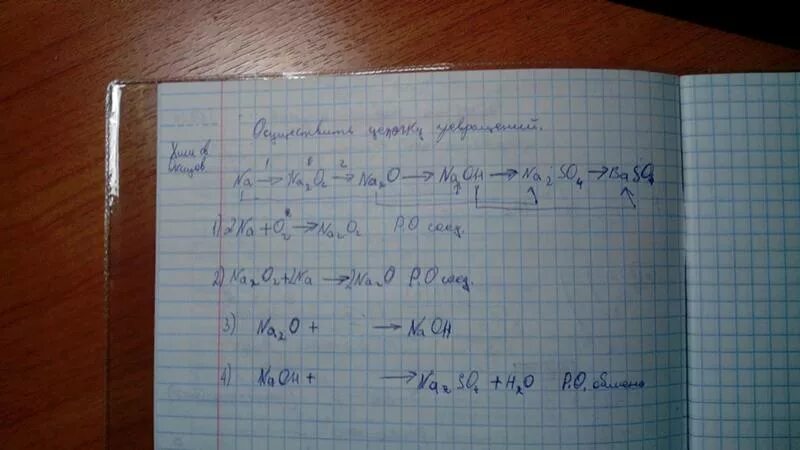 Осуществить цепочку превращений.
1 2
Na → Na₂O₂ → Na₂O → NaOH → Na₂SO₄ → BaSO₄
1) 2Na + O₂ → Na₂O₂ Р.О соед.
2) Na₂O₂ + 2Na → 2Na₂O Р.О соед.
3) Na₂O + → NaOH
4) NaOH + → Na₂SO₄ + H₂O Р.О. обмена